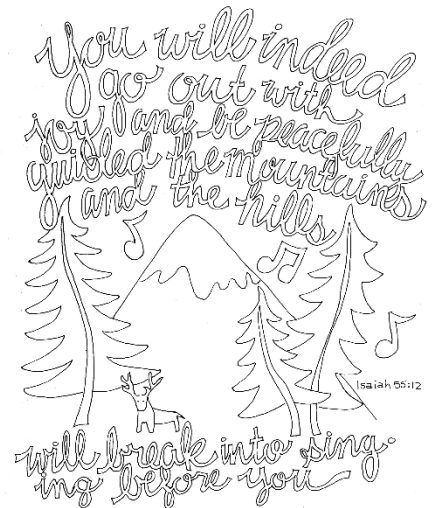 You will indeed
go out with
joy and be peacefully
guided the mountains
and the hills
Isaiah 55:12
will break into sing-
ing before you